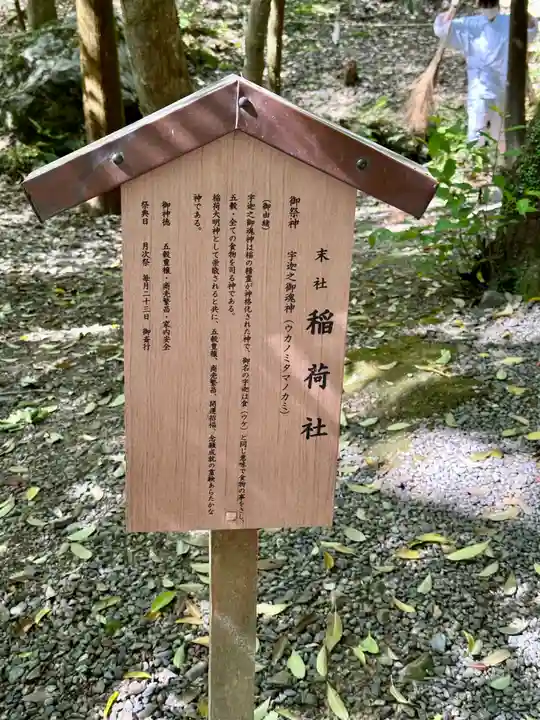 末社 稲荷社
御祭神 宇迦之御魂神(ウカノミタマノカミ)
(御由緒)
宇迦之御魂神は稲の精霊が神格化された神で、御名の宇迦は食(ウケ)と同じ意味で食物の事をさし、
五穀・全ての食物を司る神である。
稲荷大明神として崇敬されると共に、五穀豊穣、商売繁昌、開運招福、念願成就の霊験あらたかな
神である。
御神徳 五穀豊穣・商売繁昌・家内安全
祭典日 月次祭 毎月二十三日 御斎行